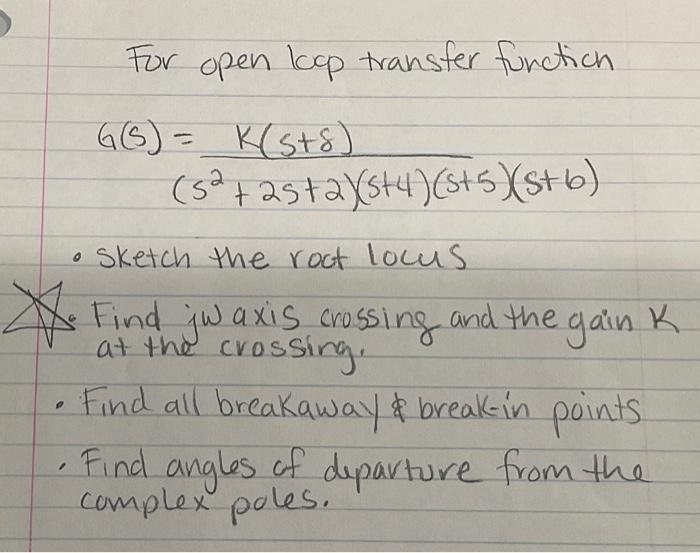 For open loop transfer function
G(s) = K(s+8)
(s²+2s+2)(s+4)(s+5)(s+6)
• Sketch the root locus
• Find jw axis crossing and the gain K
at the crossing.
• Find all breakaway & break-in points
• Find angles of departure from the
complex poles.